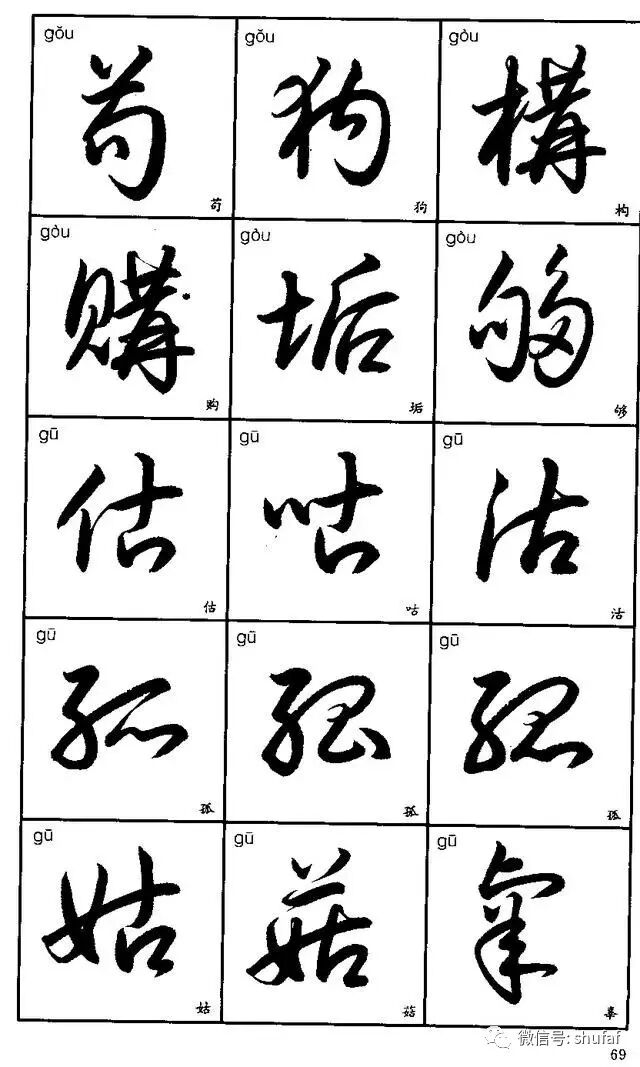 gǒu gǒu gòu
苟 狗 構
苟 狗 构
gòu gòu gòu
購 垢 够
购 垢 够
gū gū gū
估 咕 沽
估 咕 沽
gū gū gū
孤 孤 孤
孤 孤 孤
gū gū gū
姑 菇 辜
姑 菇 辜
微信号: shufaf
69